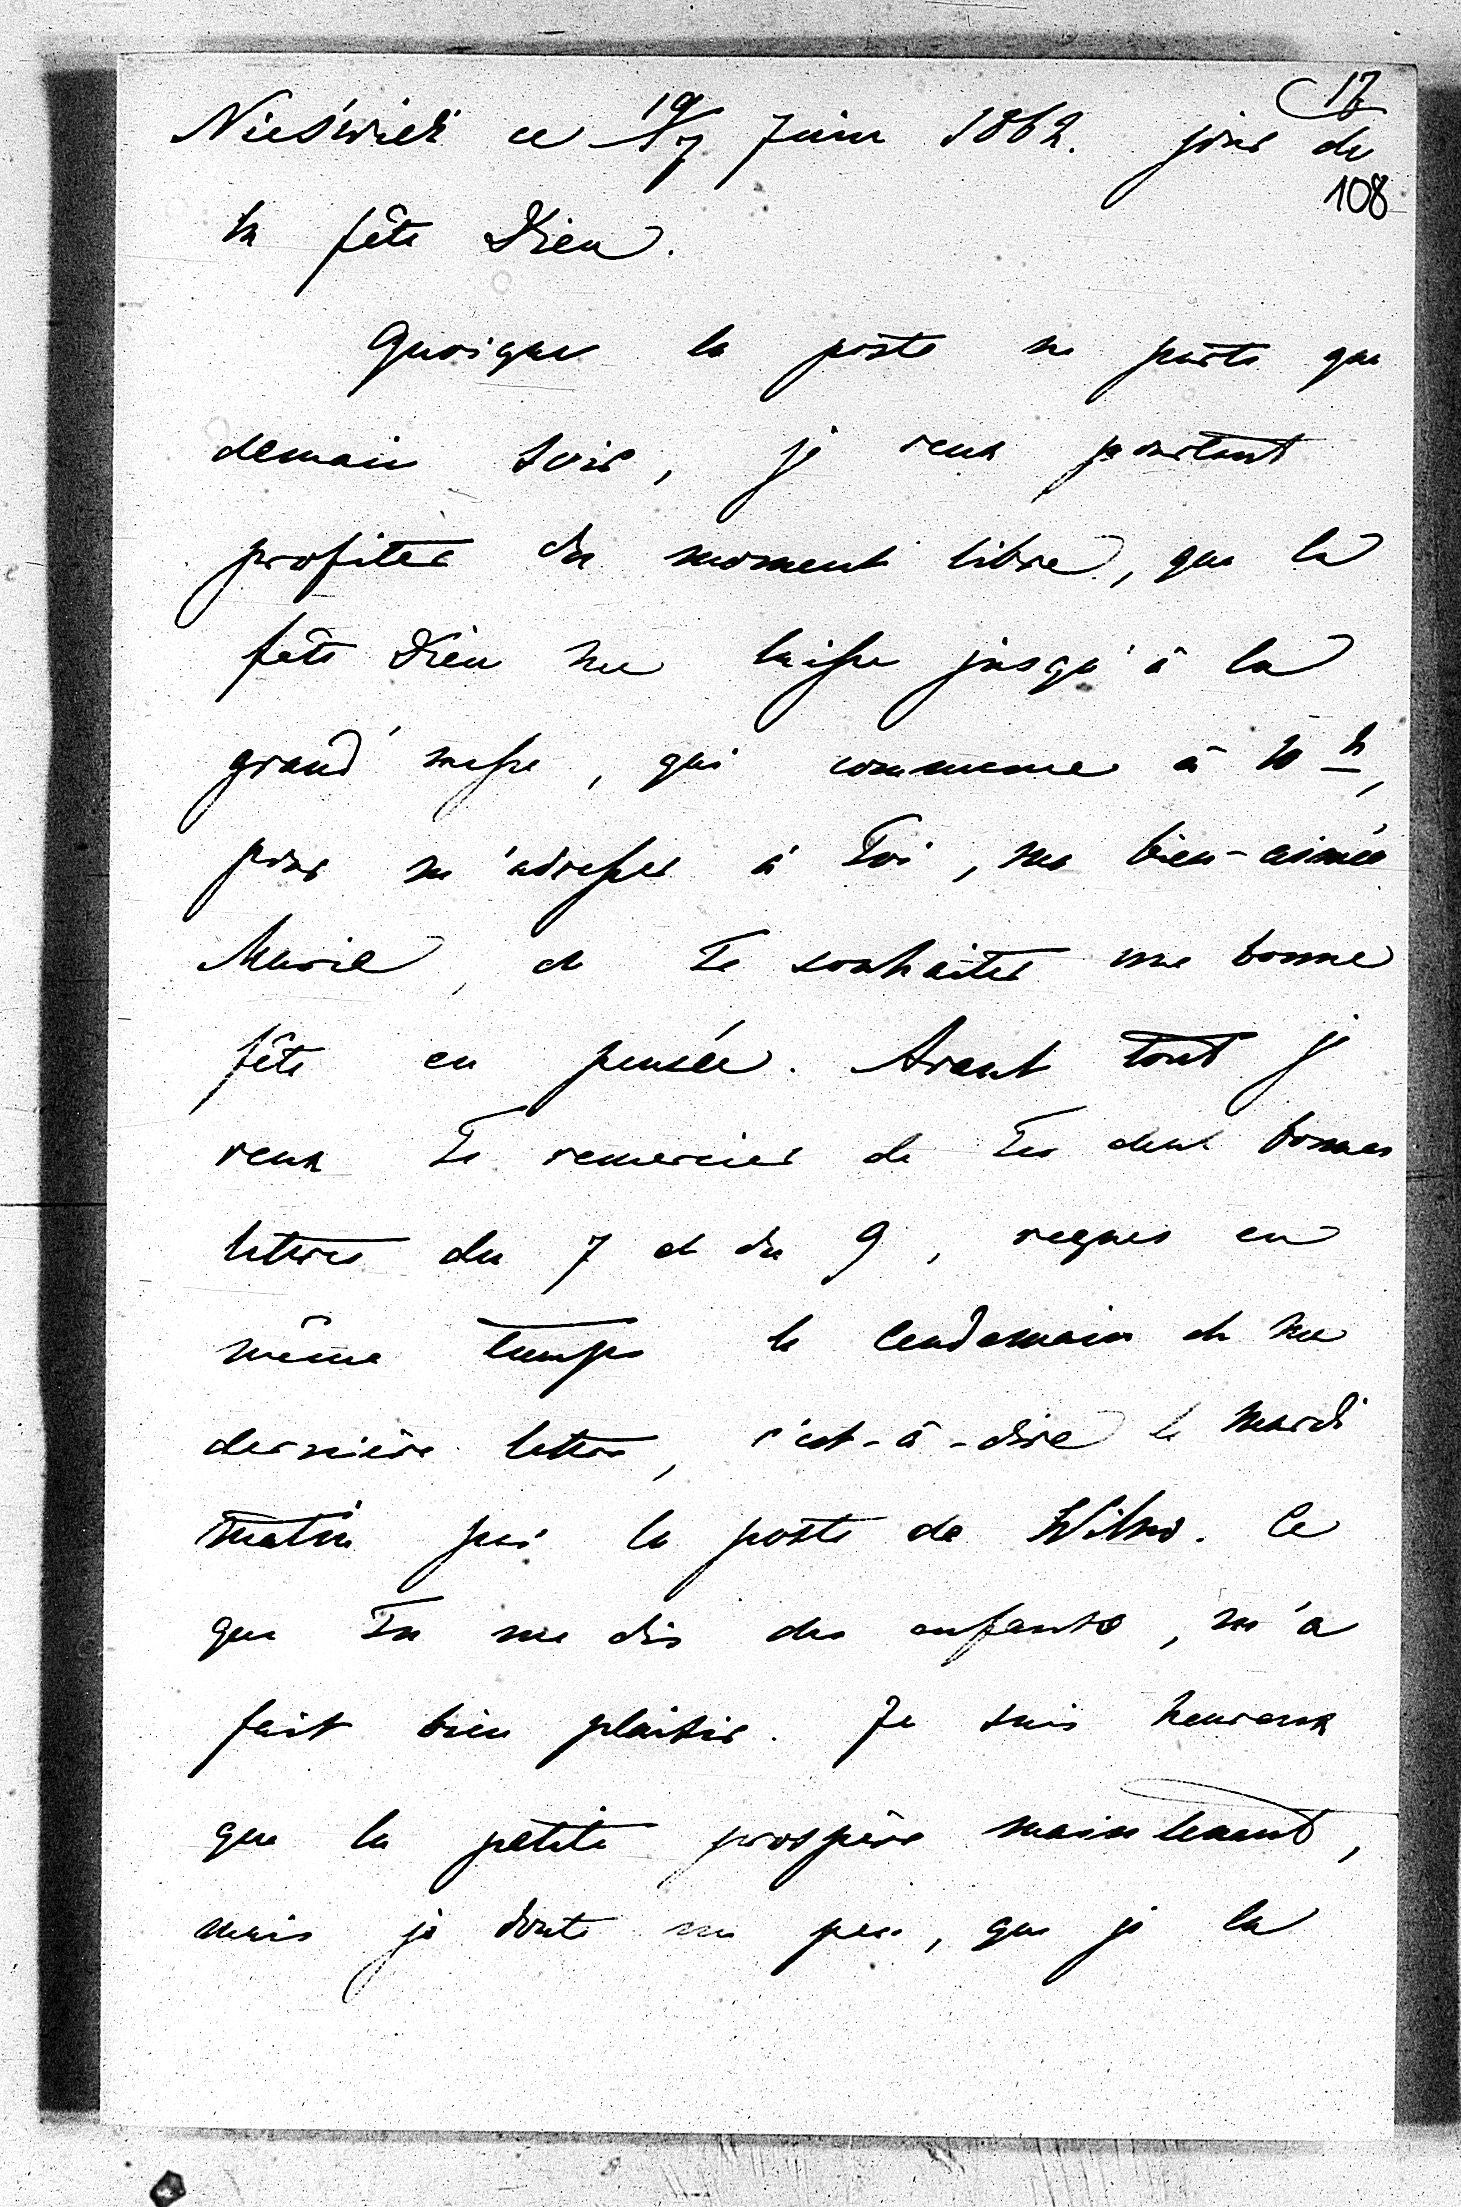 17
Nieśwież ce 19/7 Juin 1862. jour de
108
la fête Dieu.
Quoique la poste ne parte que
demain soir, je veux pourtant
profiter du moment libre, que la
fête Dieu me laisse jusqu'à la
grand' messe, qui commence à 10 h,
pour m'adresser à Toi, ma bien-aimée
Marie, et Te souhaiter une bonne
fête en pensée. Avant tout je
veux Te remercier de Tes deux bonnes
lettres du 7 et du 9, reçues en
même temps le lendemain de ma
dernière lettre, c'est-à-dire le mardi
matin par la poste de Wilno. Ce
que Tu me dis des enfants, m'a
fait bien plaisir. Je suis heureux
que la petite prospère maintenant,
mais je doute un peu, que je la